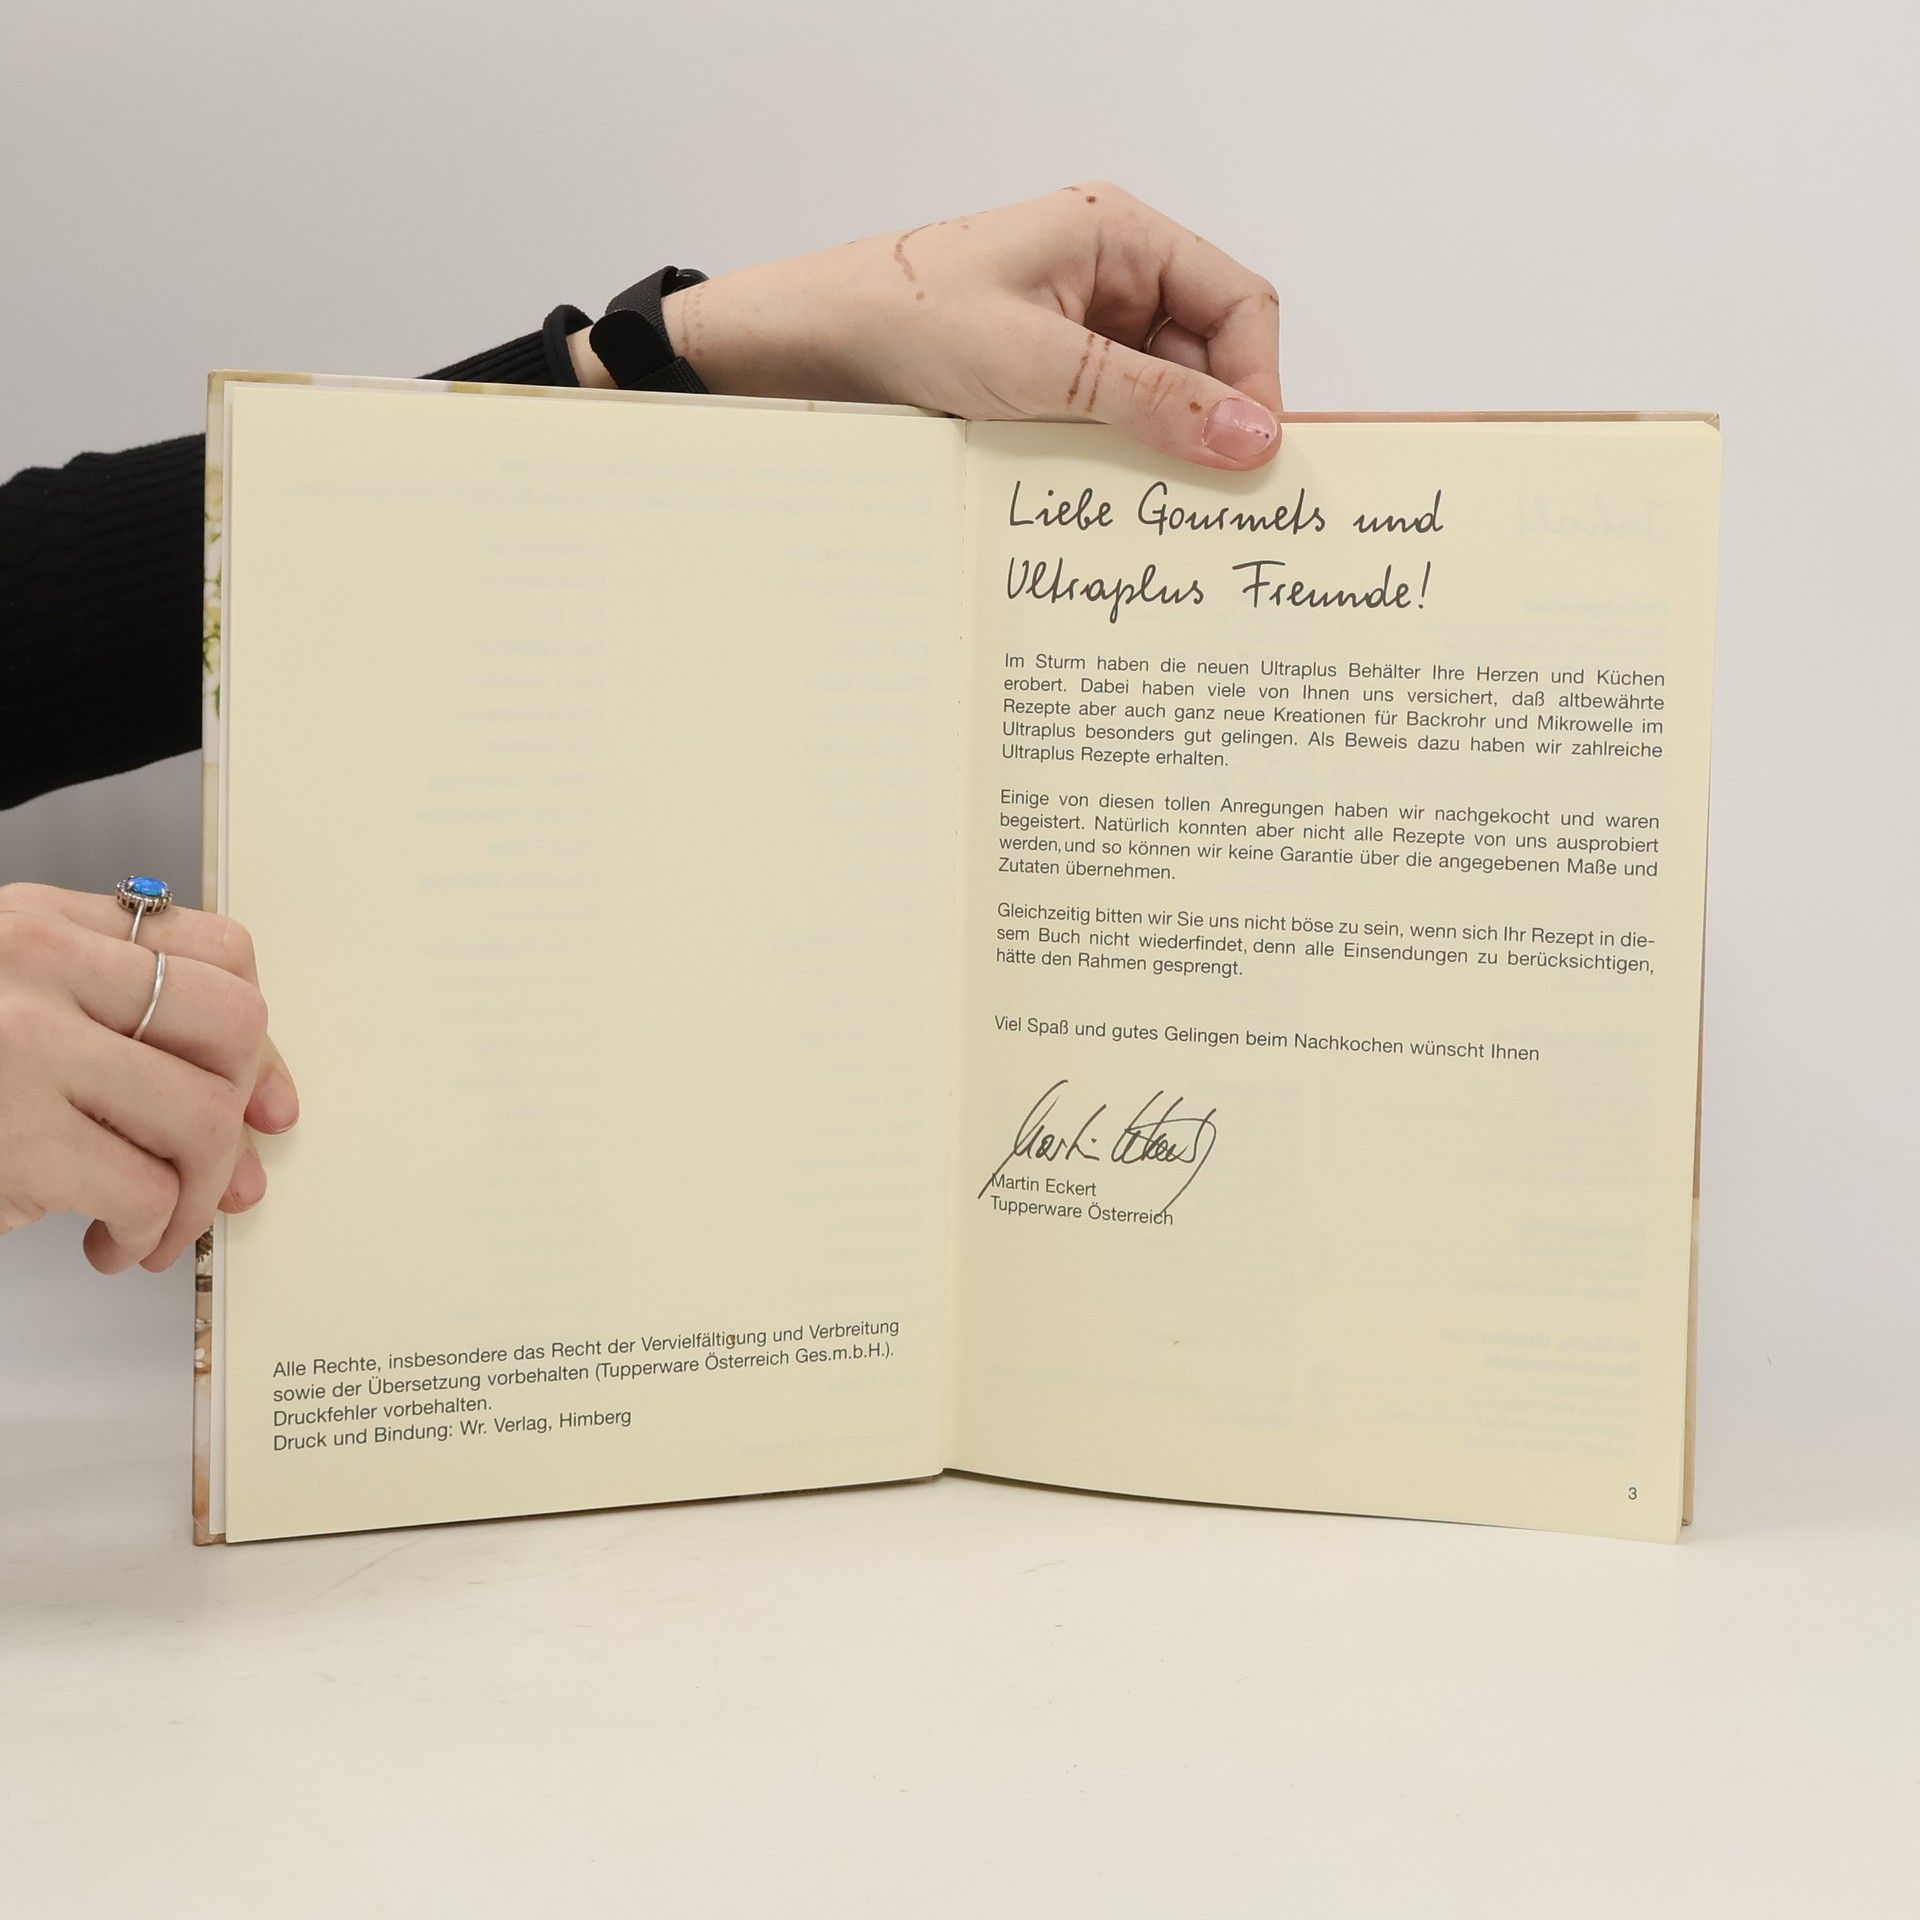 Alle Rechte, insbesondere das Recht der Vervielfältigung und Verbreitung
sowie der Übersetzung vorbehalten (Tupperware Österreich Ges.m.b.H.).
Druckfehler vorbehalten.
Druck und Bindung: Wr. Verlag, Himberg
Liebe Gourmets und
Ultraplus Freunde!
Im Sturm haben die neuen Ultraplus Behälter Ihre Herzen und Küchen
erobert. Dabei haben viele von Ihnen uns versichert, daß altbewährte
Rezepte aber auch ganz neue Kreationen für Backrohr und Mikrowelle im
Ultraplus besonders gut gelingen. Als Beweis dazu haben wir zahlreiche
Ultraplus Rezepte erhalten.
Einige von diesen tollen Anregungen haben wir nachgekocht und waren
begeistert. Natürlich konnten aber nicht alle Rezepte von uns ausprobiert
werden, und so können wir keine Garantie über die angegebenen Maße und
Zutaten übernehmen.
Gleichzeitig bitten wir Sie uns nicht böse zu sein, wenn sich Ihr Rezept in die-
sem Buch nicht wiederfindet, denn alle Einsendungen zu berücksichtigen,
hätte den Rahmen gesprengt.
Viel Spaß und gutes Gelingen beim Nachkochen wünscht Ihnen
Martin Eckert
Martin Eckert
Tupperware Österreich
3